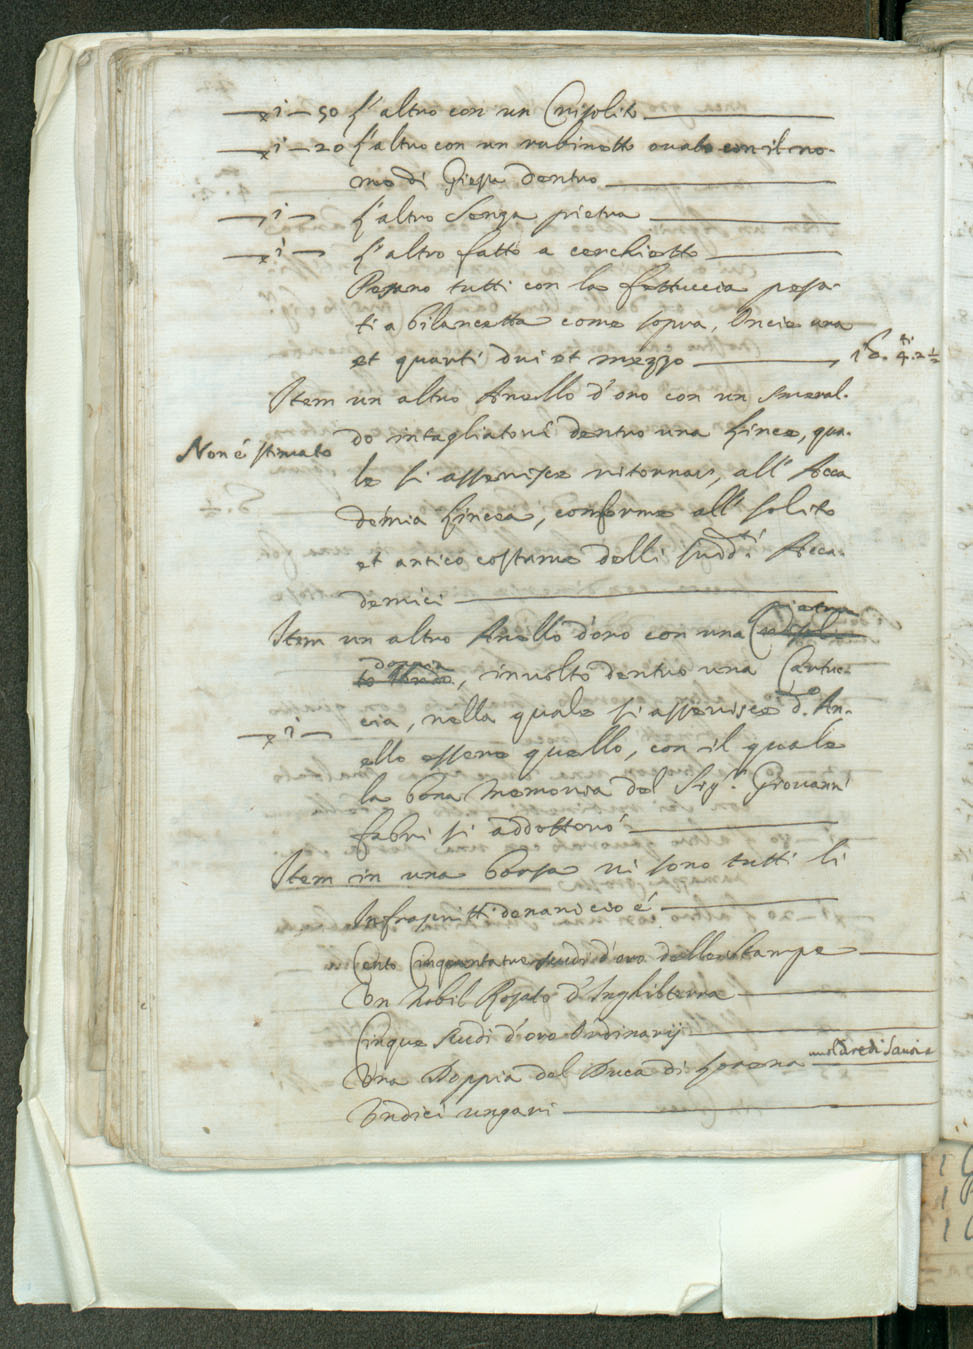 —x i – 50 L'altro con un Crisolito
—x i – 20 L'altro con un rubinetto ouato con il no-
mo di Giesu dentro
— i — L'altro senza pietra
—x i — L'altro fatto a cerchietto
Pesano tutti con la fettuccia pesa-
ti a bilancetta come sopra, Oncie una
et quarti dui et mezzo 1 4. 2 ½
Item un altro Anello d'oro con un smeral-
Non è stimato
do intagliatoui dentro una Lince, qua-
le si asserisce ritornars, all' Acca
demia Lincea, conforme all' solito
et antico costume delli sudd.ti Acca-
demici
Item un altro Anello d'oro con una pietra
doppia, inuolto dentro una Cartuc-
—x i —
cia, nella quale si asserisce d.o An-
ello essere quello, con il quale
la bona memoria del Sig.r Giouanni
fabri si addottorò
Item in una borsa ui sono tutti li
Infrascritti denari cio è
Cento Cinquantatre scudi d'oro delle stampe
Un Nobil Rosato d'Inghilterra
Cinque scudi d'oro Ordinarij
Una Doppia del Duca di Lorena di Sauoia
Undici ungari